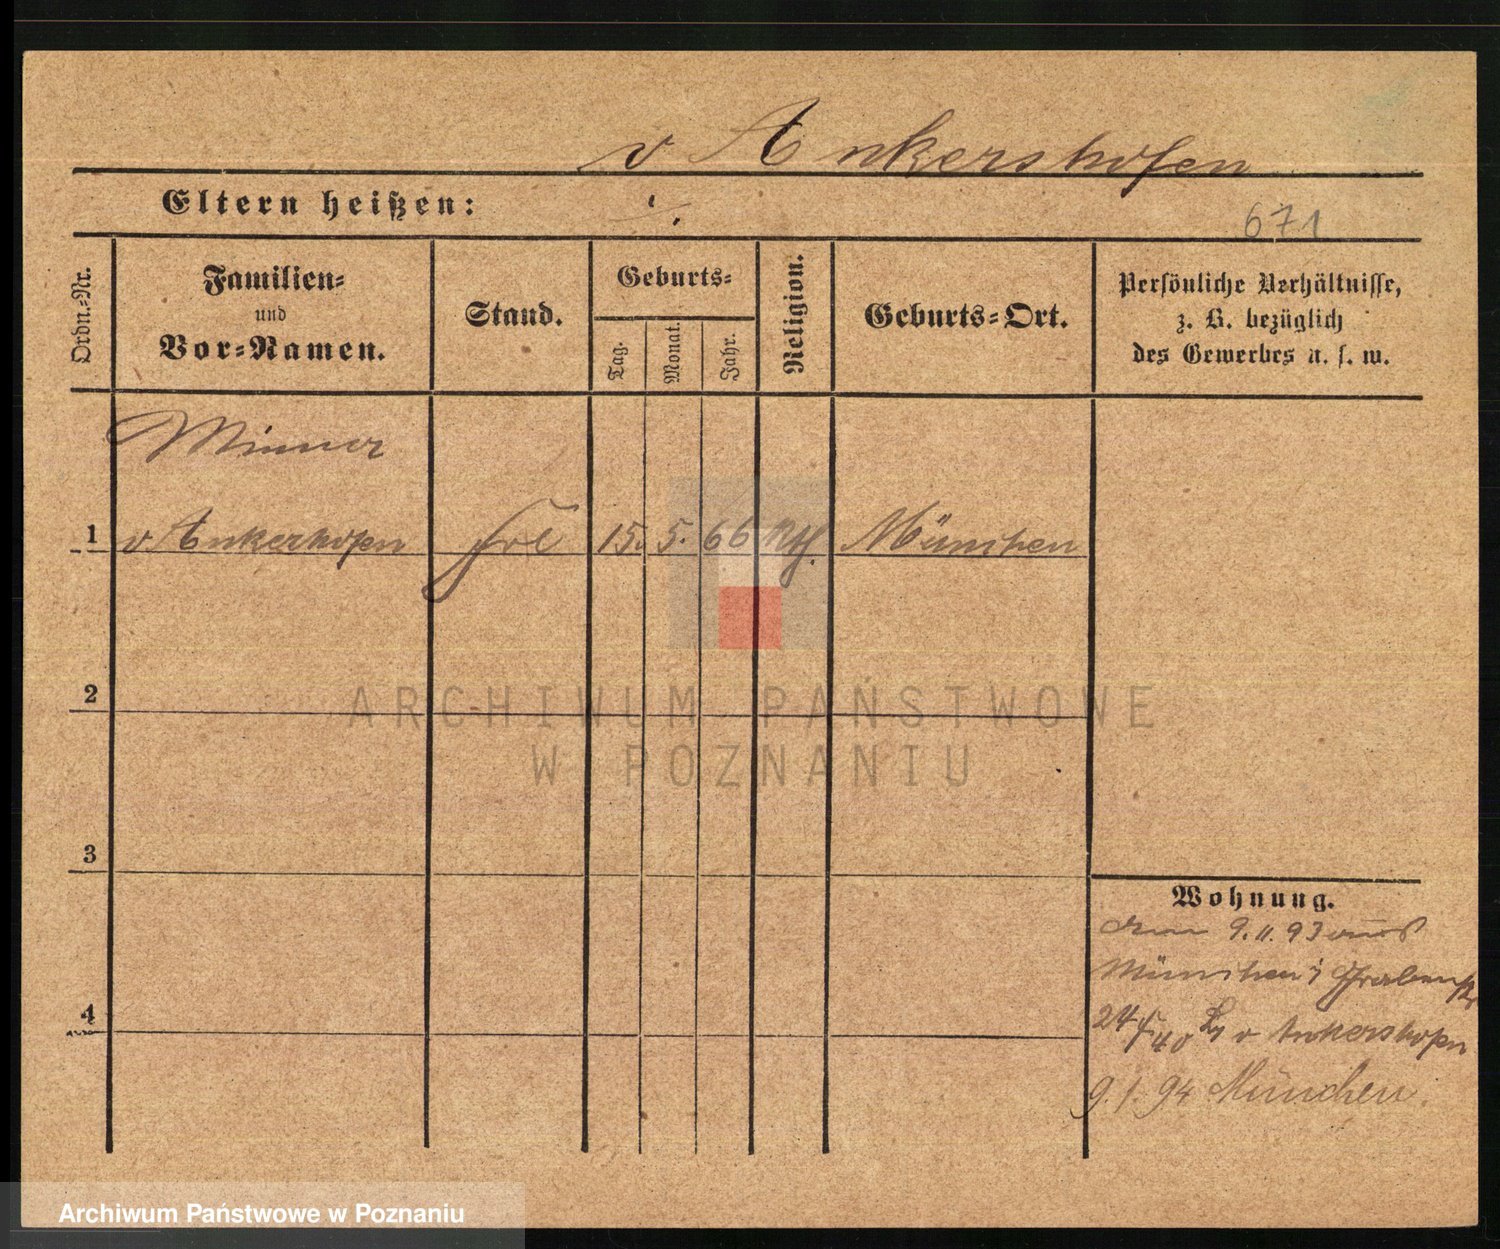 v Ankershofen
Eltern heißen: ./.
671
Ordn.-Nr.
Familien-
und
Vor-Namen.
Stand.
Geburts-
Tag.
Monat.
Jahr.
Religion.
Geburts-Ort.
Persönliche Verhältnisse,
z. B. bezüglich
des Gewerbes u. s. w.
1 v Ankershofen Frl 15. 5. 66 Kth. München
2
ARCHIWUM PAŃSTWOWE
W POZNANIU
3
Wohnung.
9. 11. 93 aus
München Grabenstr
4
24/ 40 v Ankershofen
9. 1. 94 München.
Archiwum Państwowe w Poznaniu